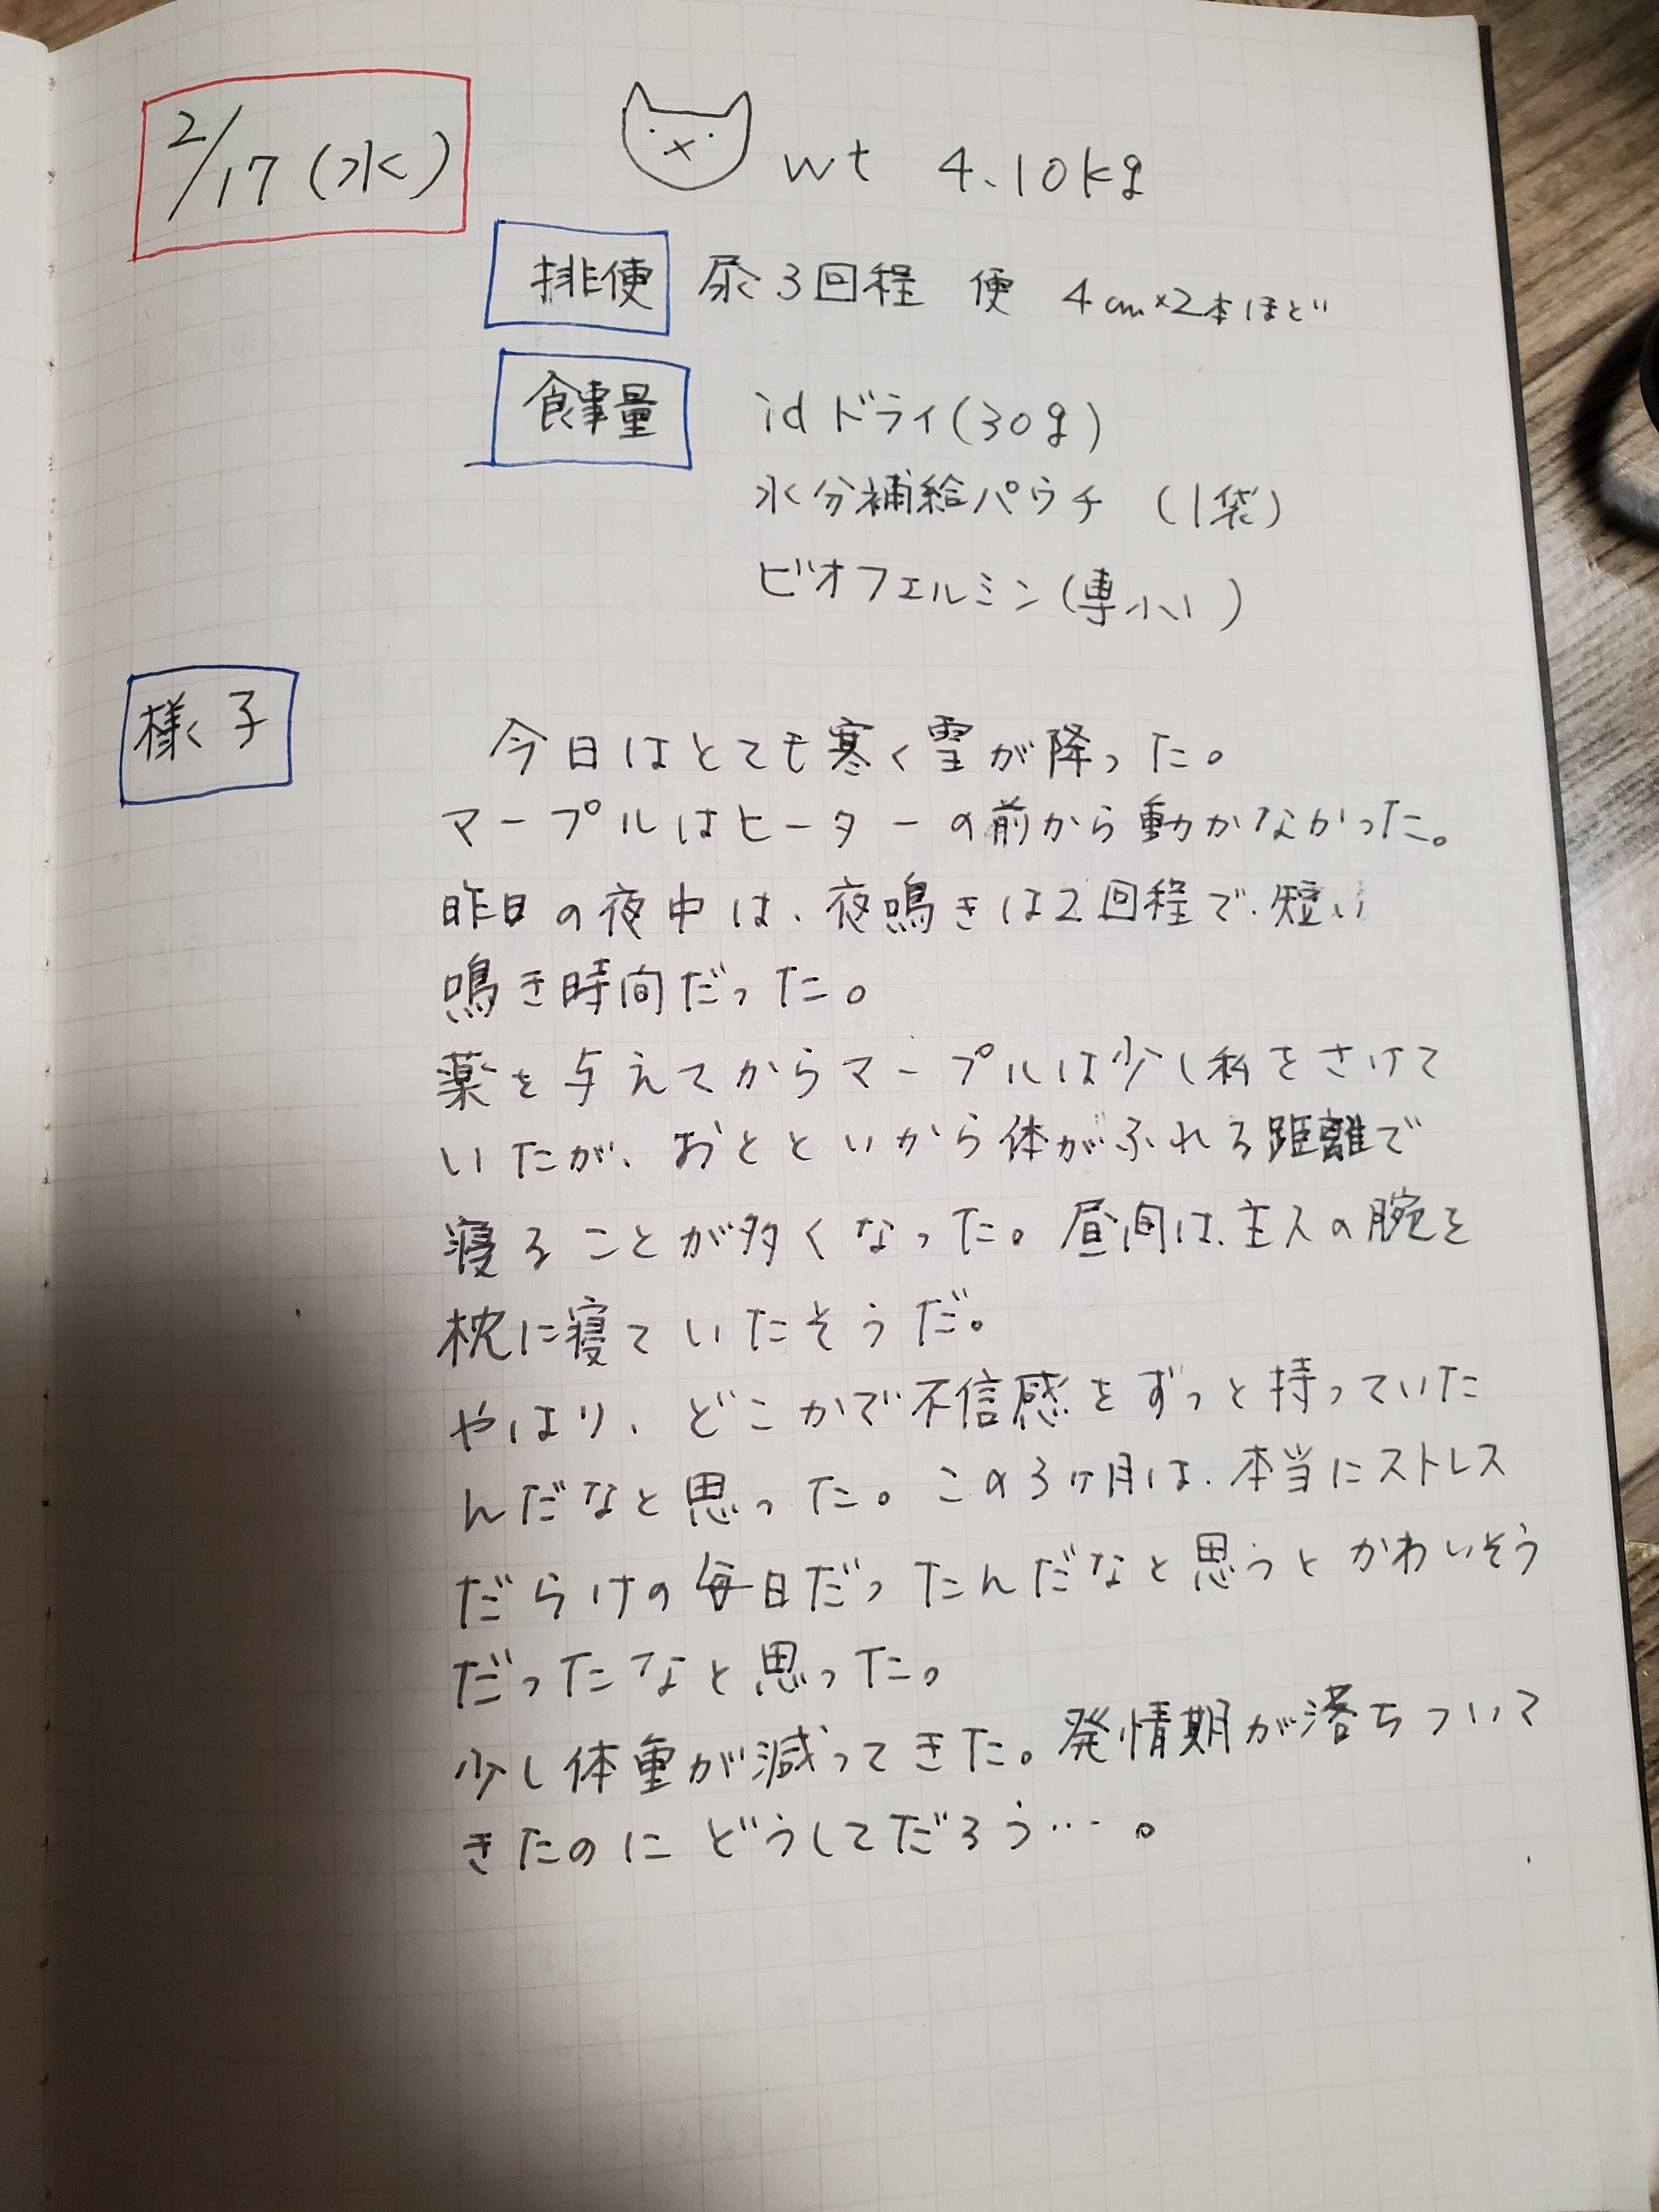 2/17(水)
wt 4.10kg
排便 尿3回程 便 4cm×2本ほど
食事量 idドライ(30g)
水分補給パウチ (1袋)
ビオフェルミン(専小1)
様子
今日はとても寒く雪が降った。
マープルはヒーターの前から動かなかった。
昨日の夜中は、夜鳴きは2回程で、短い
鳴き時間だった。
薬を与えてからマープルは少し私をさけて
いたが、おとといから体がふれる距離で
寝ることが多くなった。昼間は、主人の腕を
枕に寝ていたそうだ。
やはり、どこかで不信感をずっと持っていた
んだなと思った。この3ヶ月は、本当にストレス
だらけの毎日だったんだなと思うとかわいそう
だったなと思った。
少し体重が減ってきた。発情期が落ちついて
きたのにどうしてだろう…。